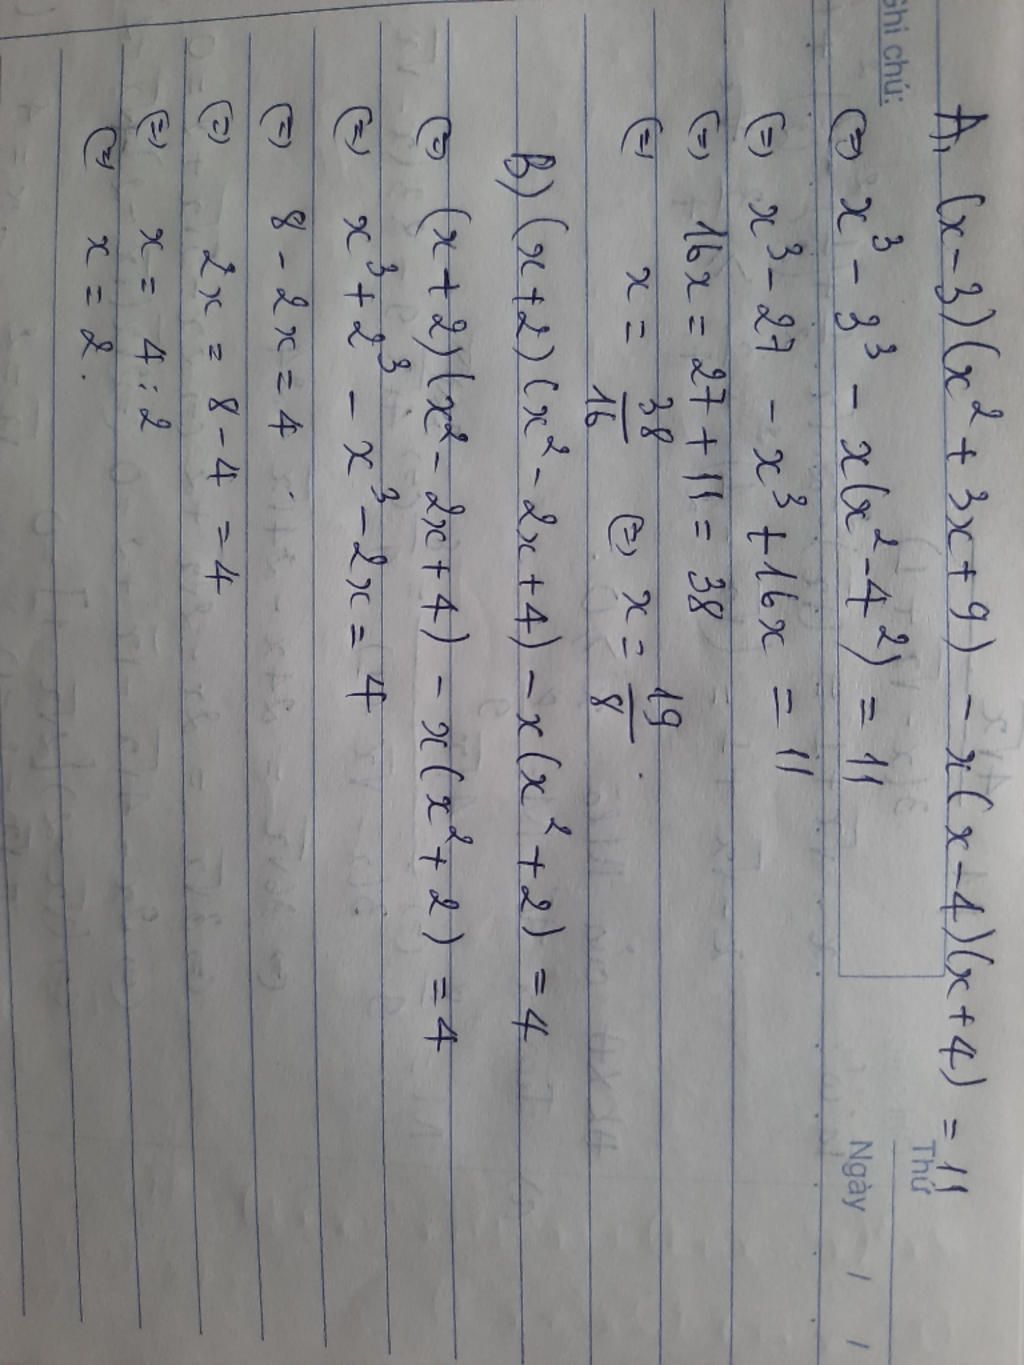 Ghi chú:
Thứ
Ngày / /
A, (x-3)(x²+3x+9) - x(x-4)(x+4) = 11
(=) x³ - 3³ - x(x²-4²) = 11
(=) x³ - 27 - x³ + 16x = 11
(=) 16x = 27 + 11 = 38
(=) x = 38/16 (=) x = 19/8.
B) (x+2)(x²-2x+4) - x(x²+2) = 4
(=) (x+2)(x²-2x+4) - x(x²+2) = 4
(=) x³ + 2³ - x³ - 2x = 4
(=) 8 - 2x = 4
(=) 2x = 8 - 4 = 4
(=) x = 4 : 2
(=) x = 2.